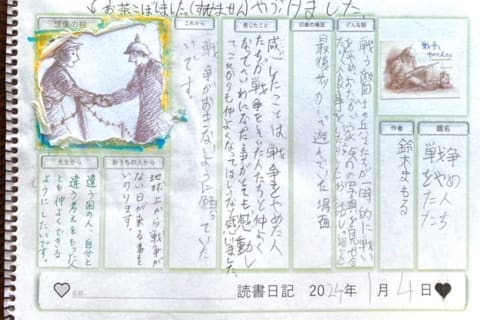 ↙お茶こぼしました(すみません)やづけました
題名
戦争をやめた人たち
作者
鈴木まもる
どんな話
戦う敵同士の兵士たちが一時的に戦い
印象的場面
最後サッカーで遊んでいた場面
感じたこと
感じたことは、戦争をやめた人
たちが戦争をしていた人たちと仲よく
なってへいわになった事がとても感動し
てこれからも仲よくなってほしいなと思いました。
これから
戦争がおきないように願っていた
いです。
想像の絵
おうちの人から
地球上から戦争が
ない日が来る事を
いのります。
先生から
違う国の人、自分と
違う考えをもった人
とも仲よくできる
ようにしたいです。
名前
読書日記 2024年1月4日